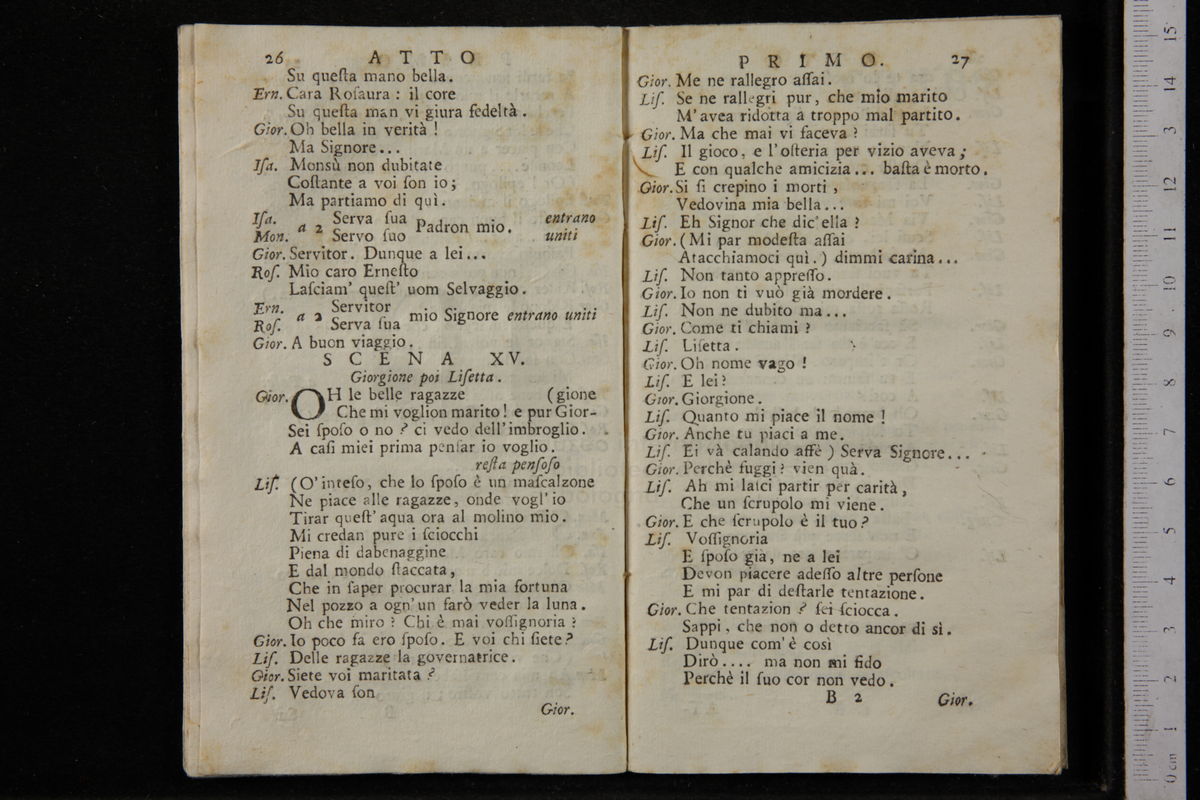 26 ATTO
Su queſta mano bella.
Ern. Cara Roſaura : il core
Su queſta man vi giura fedeltà.
Gior. Oh bella in verità !
Ma Signore...
Iſa. Monsù non dubitate
Coſtante a voi ſon io ;
Ma partiamo di quì.
Iſa. a 2 Serva ſua Padron mio. entrano
Mon. Servo ſuo uniti
Gior. Servitor. Dunque a lei...
Roſ. Mio caro Erneſto
Laſciam' queſt' uom Selvaggio.
Ern. a 2 Servitor mio Signore entrano uniti
Roſ. Serva ſua
Gior. A buon viaggio.
SCENA XV.
Giorgione poi Liſetta.
Gior. OH le belle ragazze (gione
Che mi voglion marito ! e pur Gior-
Sei ſpoſo o no ? ci vedo dell'imbroglio.
A caſi miei prima penſar io voglio.
reſta penſoſo
Liſ. (O' inteſo, che lo ſpoſo è un maſcalzone
Ne piace alle ragazze, onde vogl' io
Tirar queſt' aqua ora al molino mio.
Mi credan pure i ſciocchi
Piena di dabenaggine
E dal mondo ſtaccata,
Che in ſaper procurar la mia fortuna
Nel pozzo a ogn' un farò veder la luna.
Oh che miro ? Chi è mai voſſignoria ?
Gior. Io poco fa ero ſpoſo. E voi chi ſiete ?
Liſ. Delle ragazze la governatrice.
Gior. Siete voi maritata ?
Liſ. Vedova ſon
Gior.
PRIMO. 27
Gior. Me ne rallegro aſſai.
Liſ. Se ne rallegri pur, che mio marito
M'avea ridotta a troppo mal partito.
Gior. Ma che mai vi faceva ?
Liſ. Il gioco, e l'oſteria per vizio aveva ;
E con qualche amicizia... baſta è morto.
Gior. Si ſi crepino i morti ,
Vedovina mia bella...
Liſ. Eh Signor che dic' ella ?
Gior. (Mi par modeſta aſſai
Atacchiamoci quì.) dimmi carina...
Liſ. Non tanto appreſſo.
Gior. Io non ti vuò già mordere.
Liſ. Non ne dubito ma...
Gior. Come ti chiami ?
Liſ. Liſetta.
Gior. Oh nome vago !
Liſ. E lei ?
Gior. Giorgione.
Liſ. Quanto mi piace il nome !
Gior. Anche tu piaci a me.
Liſ. Ei và calando affè ) Serva Signore...
Gior. Perchè fuggi ? vien quà.
Liſ. Ah mi laſci partir per carità ,
Che un ſcrupolo mi viene.
Gior. E che ſcrupolo è il tuo ?
Liſ. Voſſignoria
E ſpoſo già, ne a lei
Devon piacere adeſſo altre perſone
E mi par di deſtarle tentazione.
Gior. Che tentazion ? ſei ſciocca.
Sappi, che non o detto ancor di sì.
Liſ. Dunque com' è così
Dirò .... ma non mi fido
Perchè il ſuo cor non vedo.
B 2 Gior.